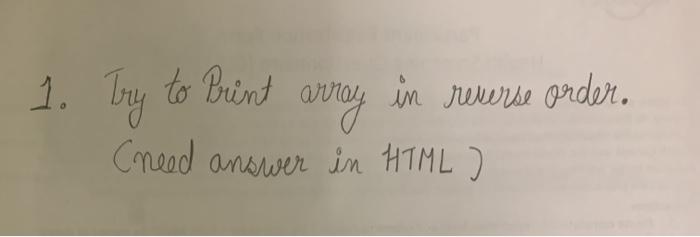 1. Try to Print array in reverse order.
(need answer in HTML)